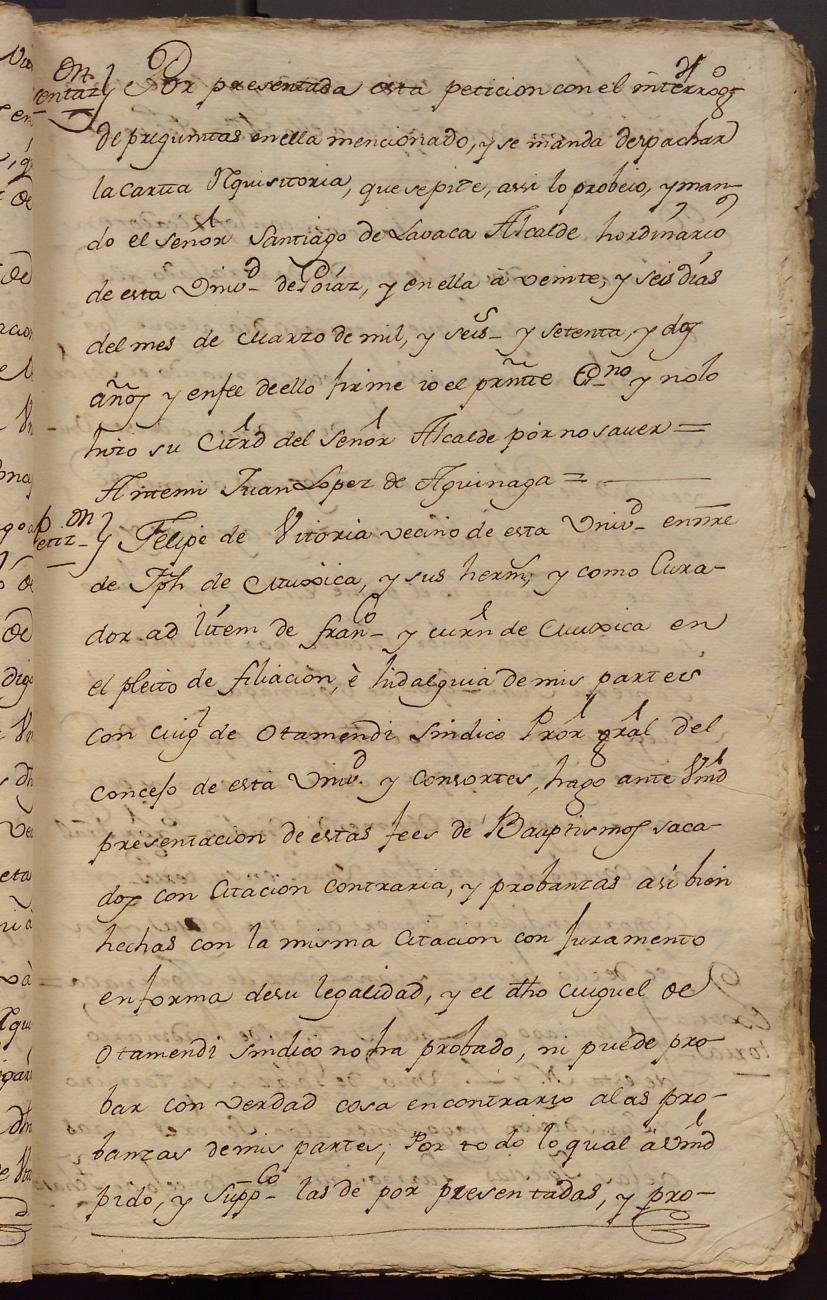 Por presentada esta peticion con el interrogo
de preguntas en ella mencionado, y se manda despachar
la Carta Requisitoria, que se pide, assi lo probeio, y man-
do el señor Santiago de Lavaca Alcalde hordinario
de esta Univd de Oiàz, y en ella à veinte, y seis dias
del mes de Marzo de mil, y seiss y setenta, y dos
años y enfee de ello firme io el prnte Esno y no lo
hizo su Mrd del Señor Alcalde por no saver =
Antemi Juan Lopez de Aguinaga =
Petizon Felipe de Vitoria vecino de esta Univd ennre
de Jph de Muxica, y sus herms, y como Cura-
dor ad litem de franco y marn de Muxica en
el pleito de filiacion, è hidalguia de mis partes
con Migl de Otamendi Sindico Pror gral del
concejo de esta Univd y Consortes, hago ante Vmd
presentacion de estas fees de Baaptismos saca-
dos con Citacion contraria, y probanzas asi bien
hechas con la misma Citacion con Juramento
enforma desu legalidad, y el dho Miguel de
Otamendi sindico no ha probado, ni puede pro-
bar con verdad cosa encontrario alas pro-
banzas demis partes, Por todo lo qual à Vmd
pido, y suppco las de por presentadas, y pro-